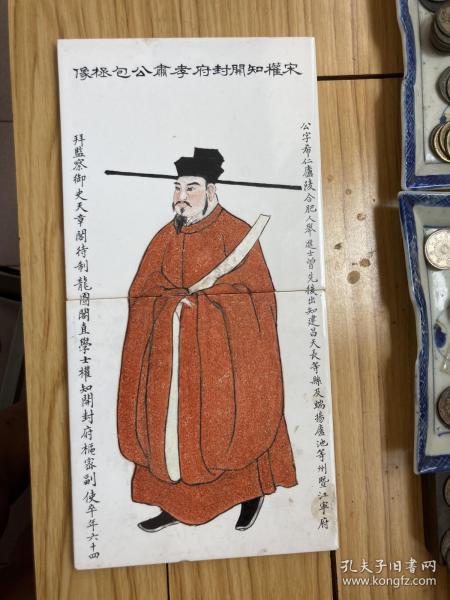 宋權知開封府孝肅公包拯像
公字希仁廬陵合肥人舉進士曾先後出知建昌天長等縣及端揚廬池等州暨江寧府
拜監察御史天章閣待制龍圖閣直學士權知開封府樞密副使卒年六十四
孔夫子旧书网
www.kongfz.com